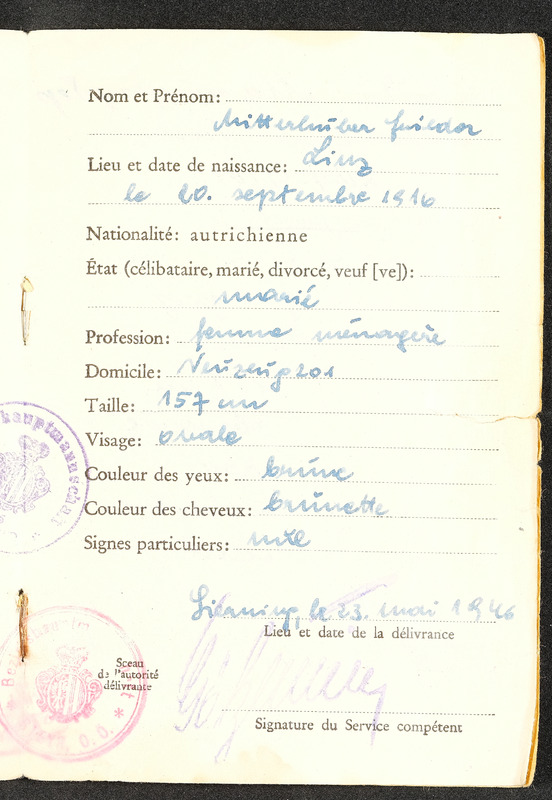 Nom et Prénom:
Mitterhuber
Lieu et date de naissance: Linz
le 20. septembre 1916
Nationalité: autrichienne
État (célibataire, marié, divorcé, veuf [ve]):
marié
Profession: femme ménagère
Domicile: Neuzeug 201
Taille: 157 cm
Visage: ovale
Couleur des yeux: brune
Couleur des cheveux: brunette
Signes particuliers:
Sierning, le 23. mai 1946
Lieu et date de la délivrance
Sceau
de l'autorité
délivrante
Signature du Service compétent